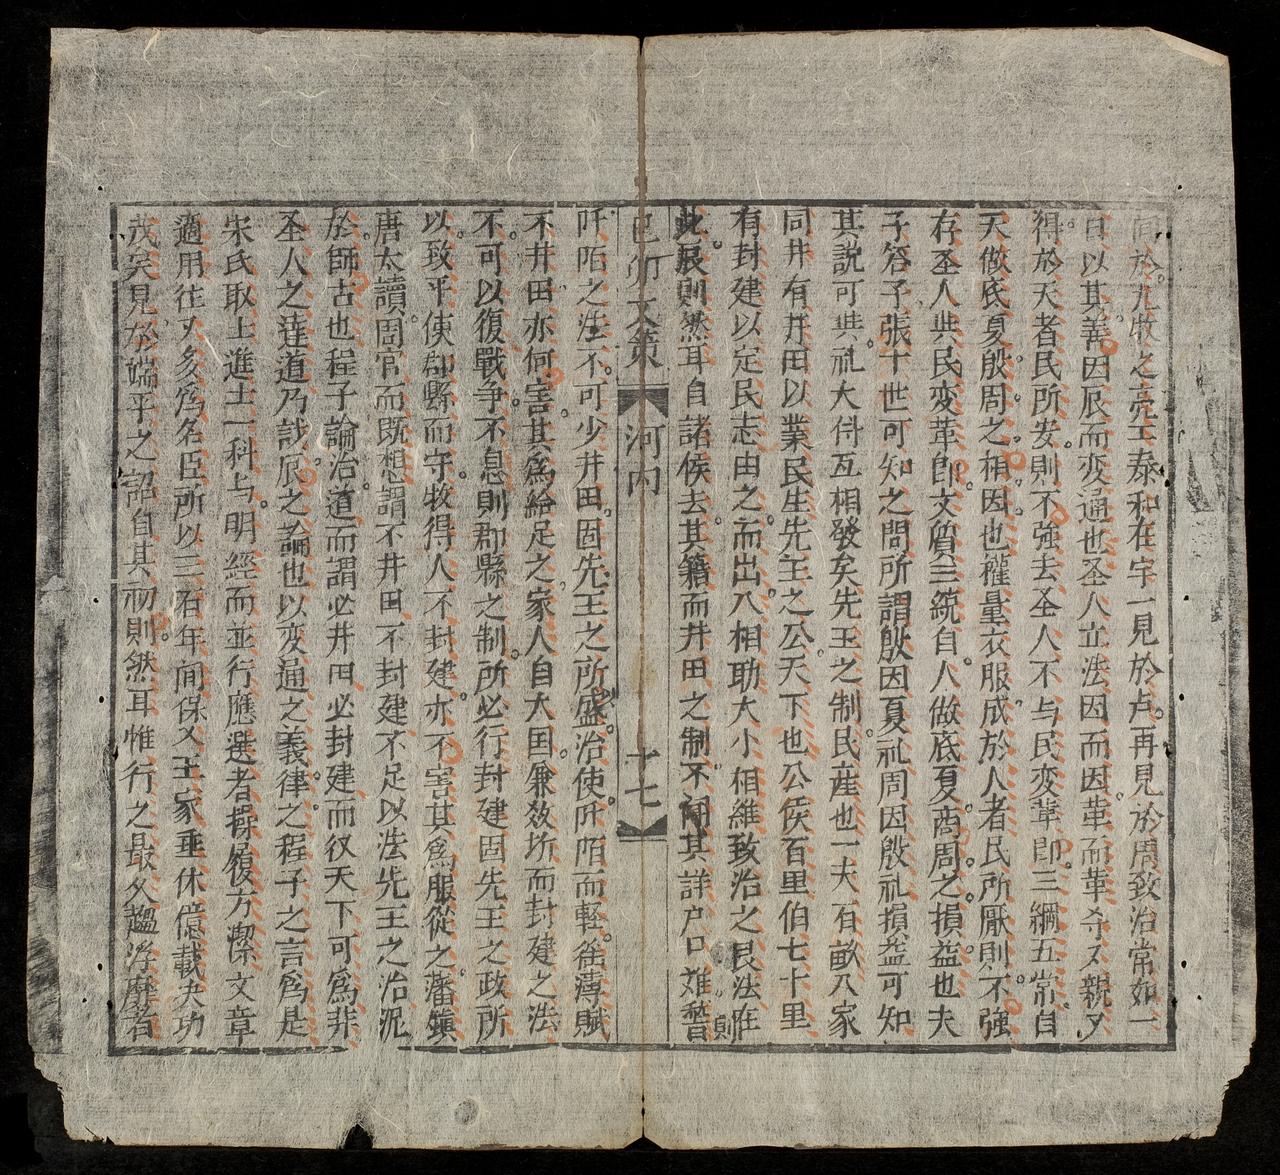 同於九牧之亮工泰和在宇一見於占再見於周致治常如一
日以其善因辰而变通也圣人立法因而因革而革夺夊親夊
得於天者民所安則不強去圣人不与民变革即三綱五常自
天做底夏殷周之相因也權量衣服成於人者民所厭則不強
存圣人共民变革即文質三統自人做底夏商周之損益也夫
子答子張十世可知之問所謂殷因夏礼周因殷礼損益可知
其說可共礼大传互相發矣先王之制民產也一夫有畝八家
同井有井田以業民生先王之公天下也公侯百里伯七十里
有封建以定民志由之而出入相助大小相維致治之良法在
此辰則然耳自諸侯去其籍而井田之制不聞其詳户口难瞀則
己卯文策 河内 十七
阡陌之法不可少井田固先王之所盛治使阡陌而軽徭薄賦
不井田亦何害其為給足之家人自大国兼效圻而封建之法
不可以復戰争不息則郡縣之制所必行封建固先王之政所
以致平使郡縣而守牧得人不封建亦不害其為服從之藩鎮
唐太讀周官而既想謂不井田不封建不足以法先王之治泥
於師古也程子論治道而謂必井田必封建而後天下可為非
圣人之達道乃訬辰之論也以变通之義律之程子之言為是
宋氏取士進士一科与明經而並行應選者操履方潔文章
適用往夊多為名臣所以三百年间保乂王家垂休億載夫功
茂矣見於端平之詔自其初則然耳惟行之最久趨浮靡者